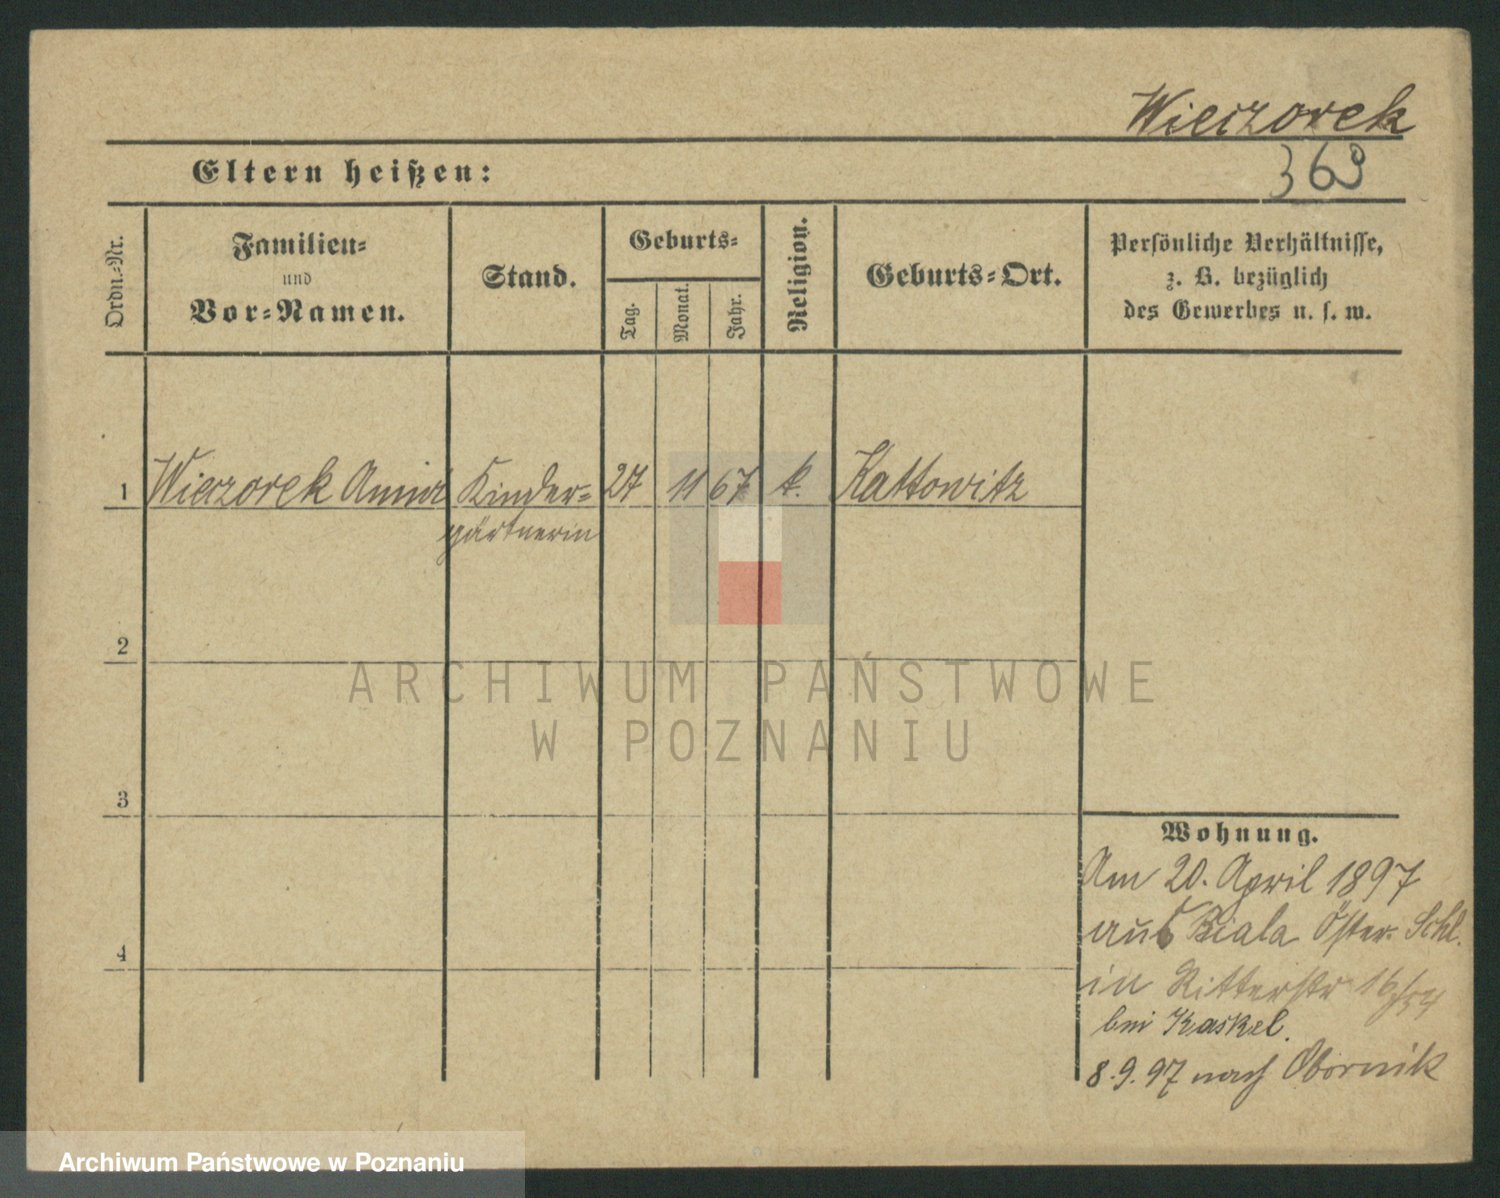 Wieczorek
369
Eltern heißen:
Ordn.-Nr.
Familien-
und
Vor-Namen.
Stand.
Geburts-
Tag.
Monat.
Jahr.
Religion.
Geburts-Ort.
Persönliche Verhältnisse,
z. B. bezüglich
des Gewerbes u. s. w.
1 Wieczorek Anna Kinder- 27 11 67 k. Kattowitz
gärtnerin
2
3
4
Wohnung.
Am 20. April 1897
aus Biala Öster. Schl.
in Ritterstr 16/
bei Kaskel.
8.9.97 nach Obornik
ARCHIWUM PAŃSTWOWE
W POZNANIU
Archiwum Państwowe w Poznaniu